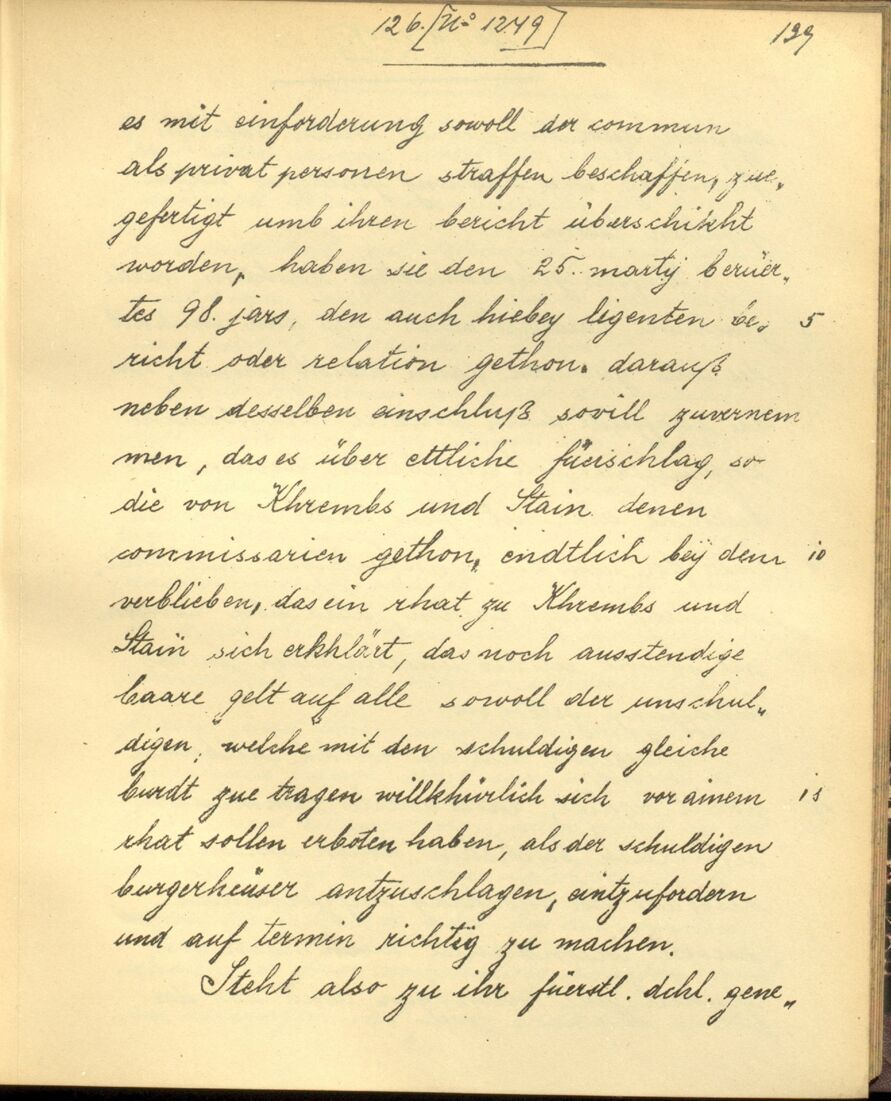 126. [No 1249]
199
es mit einforderung sowoll der commun
als privat personen straffen beschaffen, zue„
gefertigt umb ihren bericht überschikht
worden, haben sie den 25. martÿ berüer„
tes 98. jars, den auch hiebey ligenten be„ 5
richt oder relation gethon. darauß
neben desselben einschluß sovill zuvernem
men, das es über ettliche füerschlag, so
die von Khrembs und Stain denen
commissarien gethon, endtlich beÿ dem 10
verblieben, das ein rhat zu Khrembs und
Stain sich erkhlärt, das noch ausstendige
baare gelt auf alle sowoll der unschul„
digen, welche mit den schuldigen gleiche
burdt zue tragen willkhürlich sich vor ainem 15
rhat sollen erboten haben, als der schuldigen
burgerheüser antzuschlagen, eintzufordern
und auf termin richtig zu machen.
Steht also zu ihr füerstl. dchl. gene„